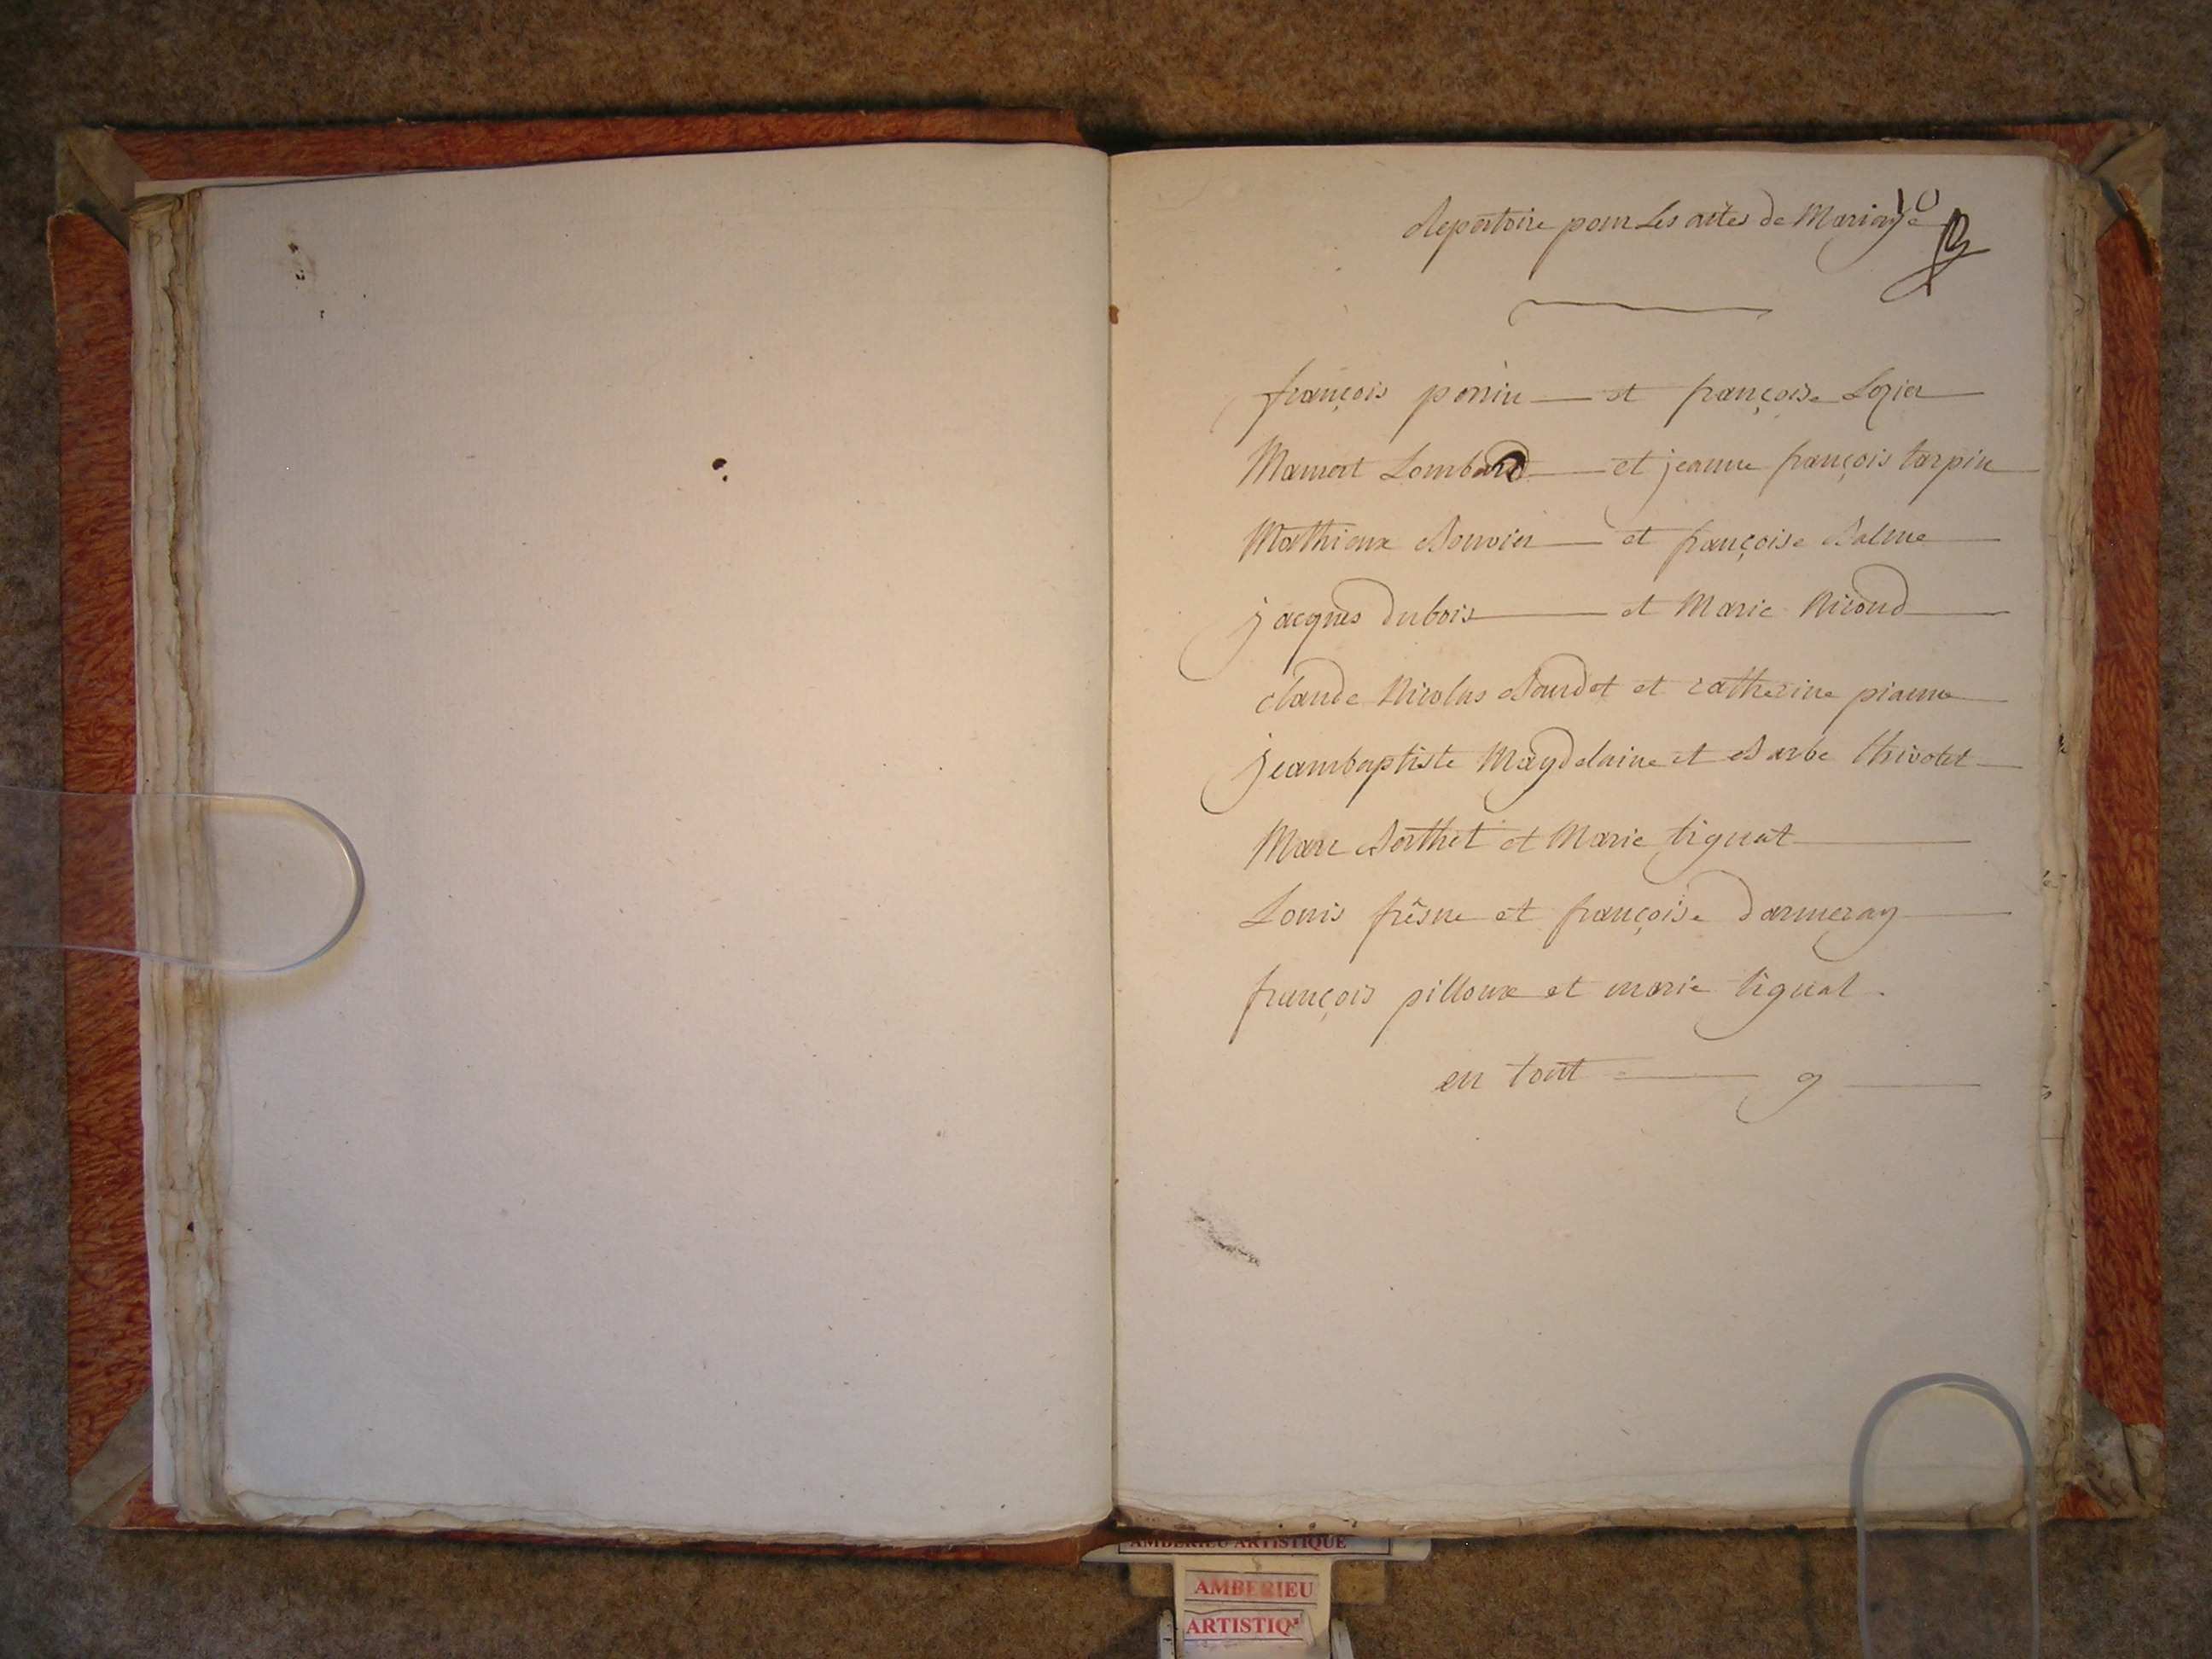 10
Repertoire pour Les actes de Mariage
françois perrin et françoise Lozier
Mamert Lombard et jeanne françois tarpin
Mathieux Bouvier et françoise Balme
jacques dubois et Marie Nicoud
claude Nicolas Bourdet et catherine
jeanbaptiste Magdelaine et Barbe thivolet
Marc Berthet et Marie tiguat
Louis frêsne et françoise darmeray
françois pilloux et marie tiguat
en tout 9
AMBERIEU ARTISTIQUE
AMBERIEU
ARTISTIQ